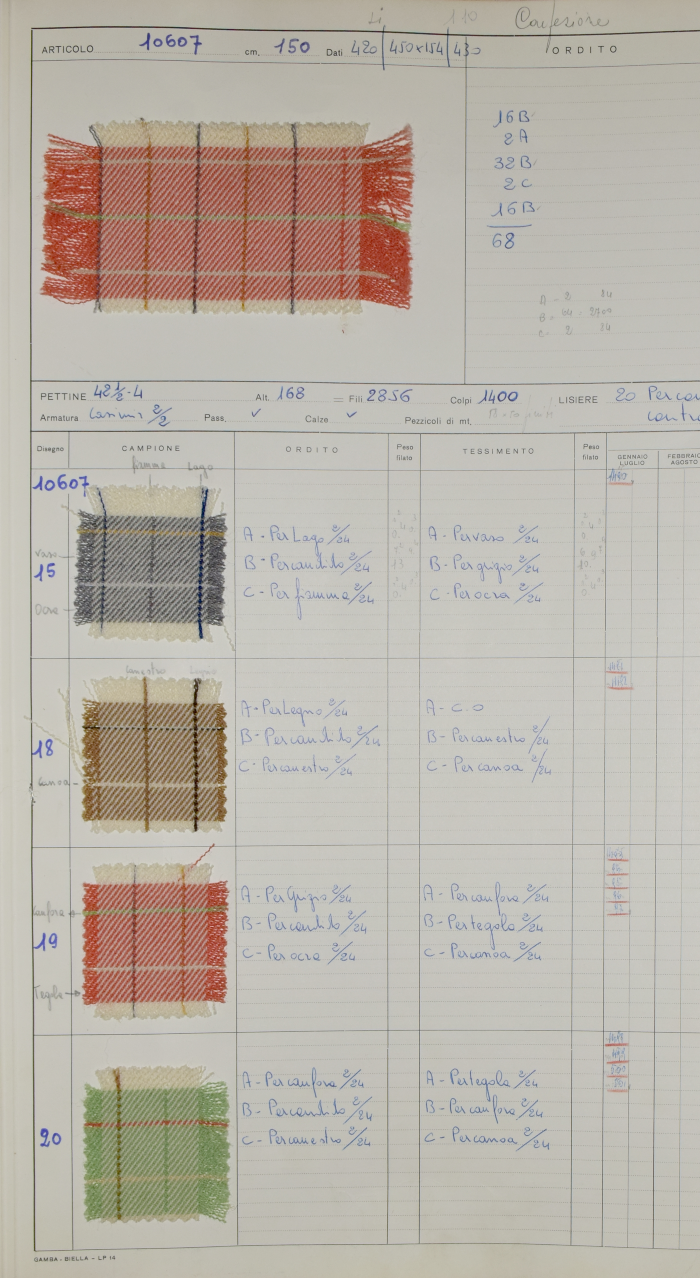 Confezione
ARTICOLO 10607 cm. 150 Dati 420 | 450x154 | 430 ORDITO
16 B
2 A
32 B
2 C
16 B
68
A - 2 84
B = 64 = 2709
C - 2 84
PETTINE 42 1/2 - 4 Alt. 168 = Fili 2856 Colpi 1400 LISIERE 20
Armatura 2/2 Pass. ✓ Calze ✓ Pezzicoli di mt.
Disegno CAMPIONE ORDITO Peso filato TESSIMENTO Peso filato GENNAIO LUGLIO FEBBRAIO AGOSTO
fiamma Lago
10607
vaso
15
Ocra
A - Per Lago 2/24
B - Percandito 2/24
C - Per fiamma 2/24
A - Per vaso 2/24
B - Per grigio 2/24
C - Per ocra 2/24
Canestro Legno
18
Canoa
A - Per Legno 2/24
B - Percandito 2/24
C - Percanestro 2/24
A - C.O
B - Percanestro 2/24
C - Percanoa 2/24
Canfora
19
Tegola
A - Per Grigio 2/24
B - Percandito 2/24
C - Per ocra 2/24
A - Percanfora 2/24
B - Pertegola 2/24
C - Percanoa 2/24
20
A - Percanfora 2/24
B - Percandito 2/24
C - Percanestro 2/24
A - Pertegola 2/24
B - Percanfora 2/24
C - Percanoa 2/24
GAMBA - BIELLA - LP 14